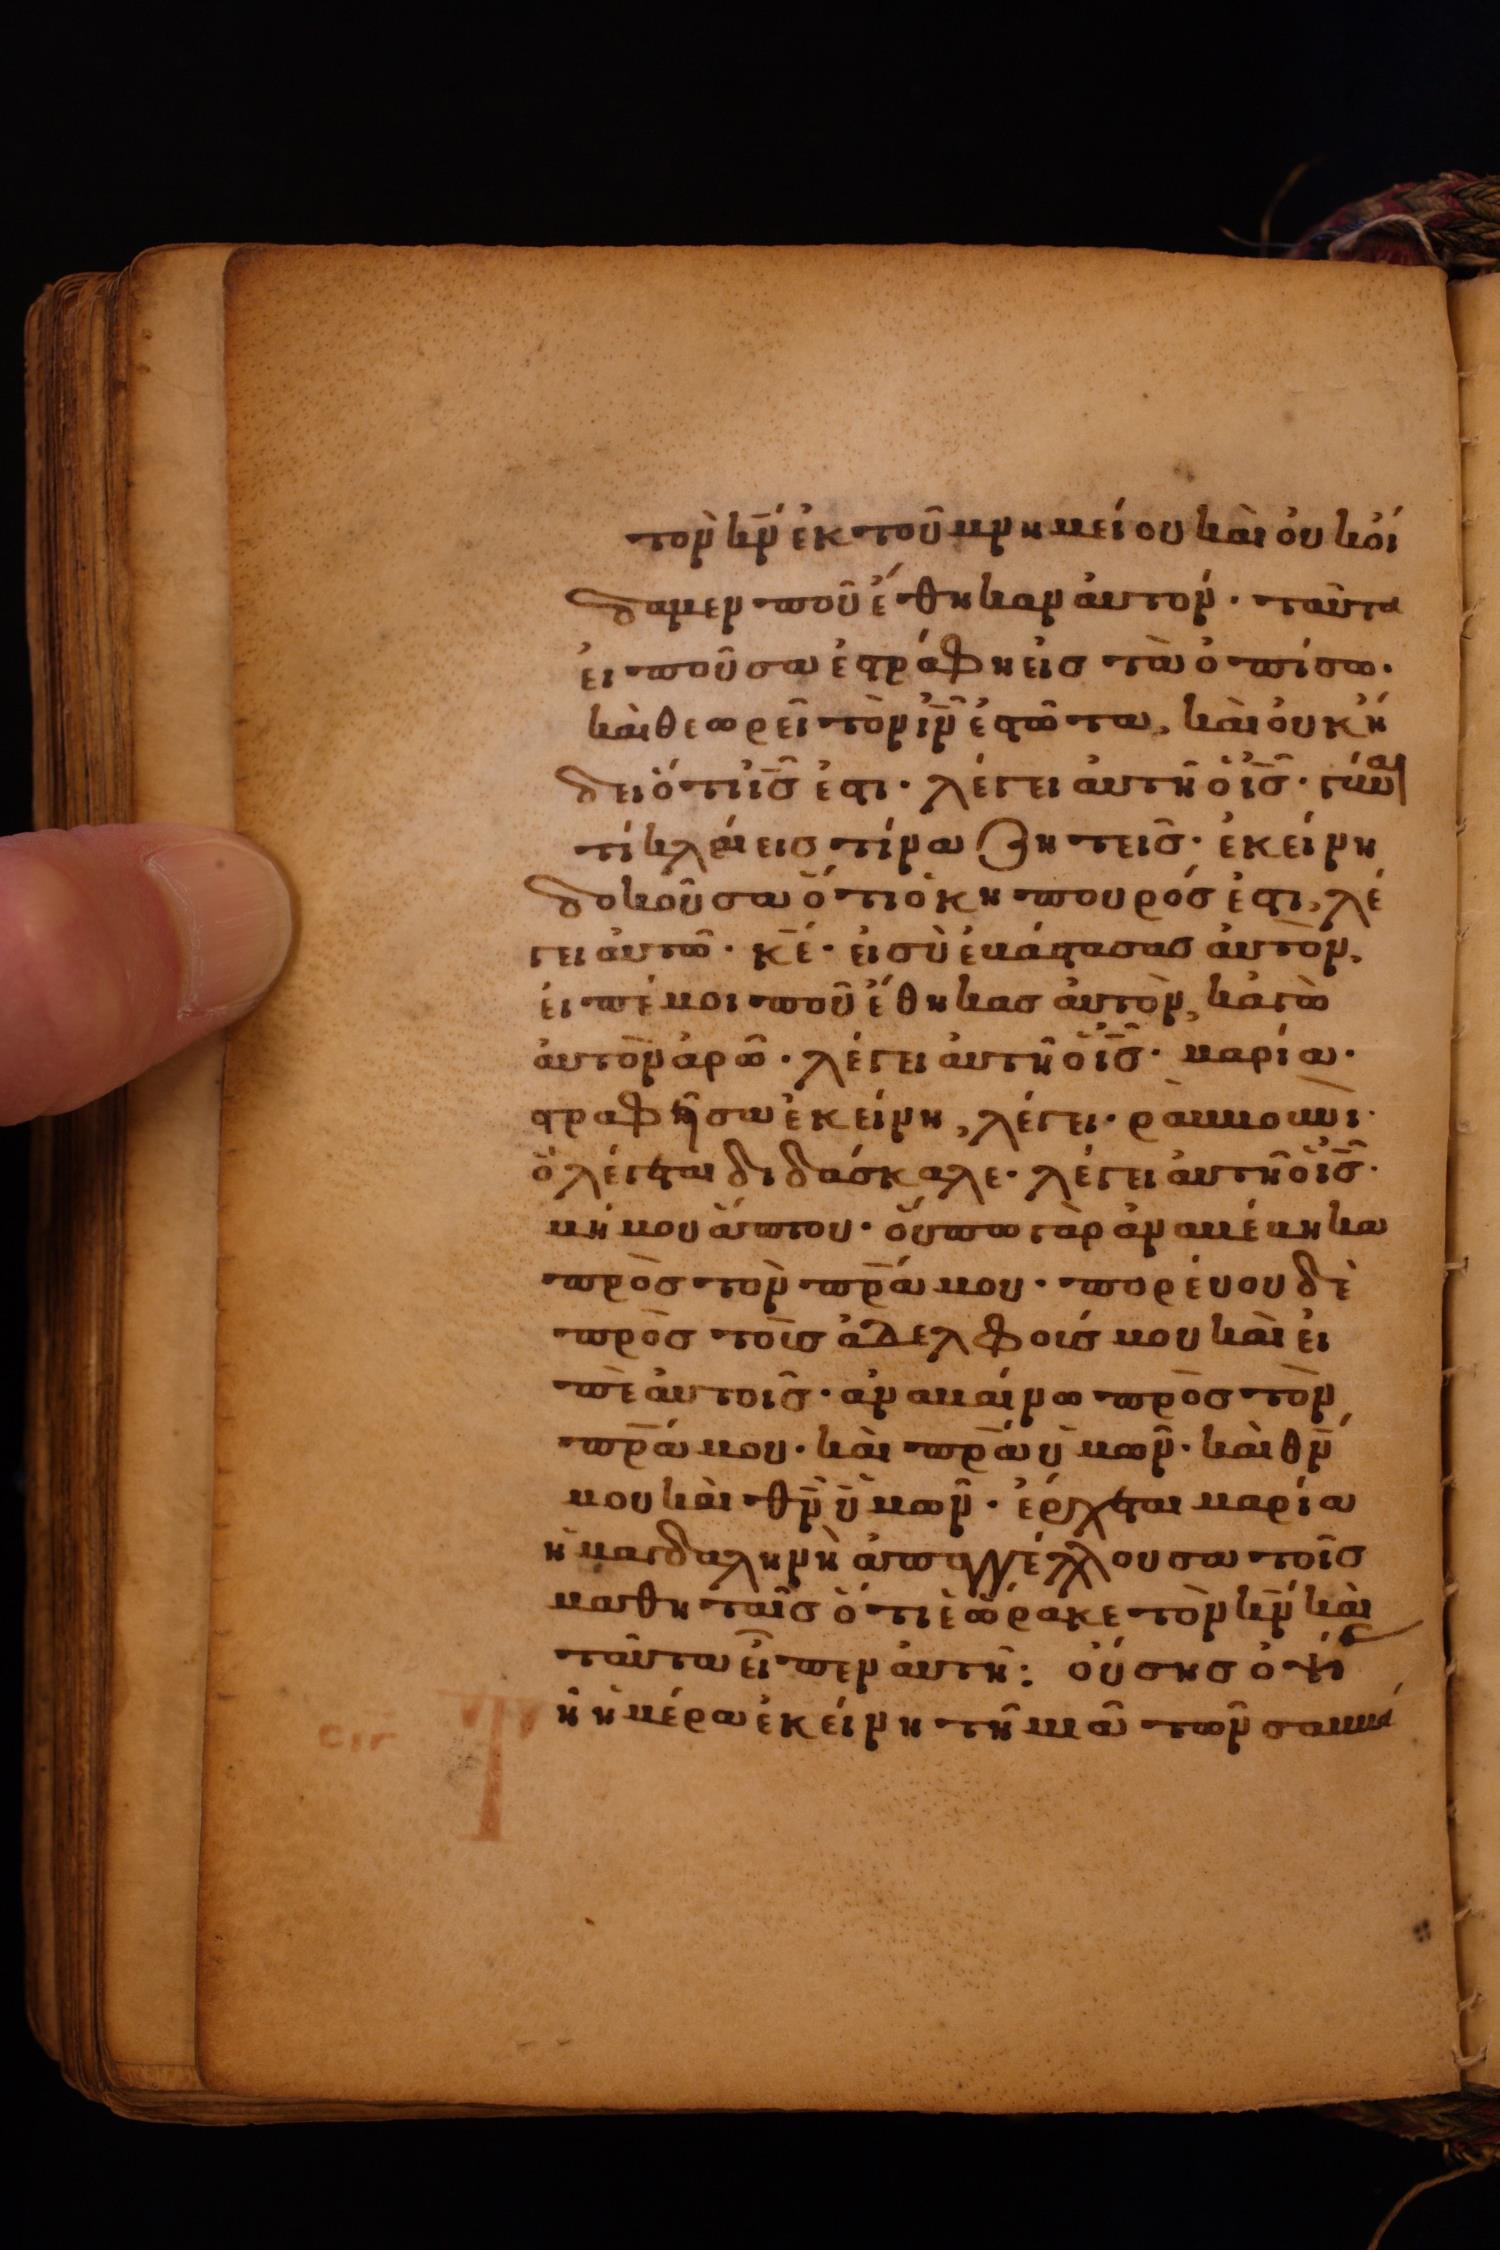 τὸν κν̄ ἐκ τοῦ μνημείου καὶ οὐκ οἴ
δαμεν ποῦ ἔθηκαν αὐτόν · ταῦτα
εἰποῦσα ἐστράφη εἰς τὰ ὀπίσω ·
καὶ θεωρεῖ τὸν ιν̄ ἑστῶτα, καὶ οὐκ ἤ
δει ὅτι ις̄ ἐστι · λέγει αὐτῆ ὁ ις̄ · γύναι
τί κλαίεις τίνα ζητεῖς · ἐκείνη
δοκοῦσα ὅτι ὁ κηπουρός ἐστι, λέ
γει αὐτῶ · κε̄ · εἰ σὺ ἐβάστασας αὐτὸν,
εἰπέ μοι ποῦ ἔθηκας αὐτὸν, κἀγὼ
αὐτὸν ἀρῶ · λέγει αὐτῆ ὁ ις̄ · μαρία ·
στραφῆσα ἐκείνη, λέγει · ραββουνὶ ·
ὃ λέγεται διδάσκαλε · λέγει αὐτῆ ὁ ις̄ ·
μή μου ἅπτου · οὔπω γὰρ ἀναβέβηκα
πρὸς τὸν πρ̄α μου · πορεύου δὲ
πρὸς τοὺς ἀδελφούς μου καὶ εἰ
πὲ αὐτοῖς · ἀναβαίνω πρὸς τὸν
πρ̄α μου · καὶ πρ̄α ὑμῶν · καὶ θν̄
μου καὶ θν̄ ὑμῶν · ἔρχεται μαρία
ἡ μαγδαληνὴ ἀπαγγέλλουσα τοῖς
μαθηταῖς ὅτι ἑώρακε τὸν κν̄ καὶ
ταῦτα εἶπεν αὐτῆ : οὔσης ὀψί
ῆ ἡμέρα ἐκείνη τῆ μιᾶ τῶν σαββά